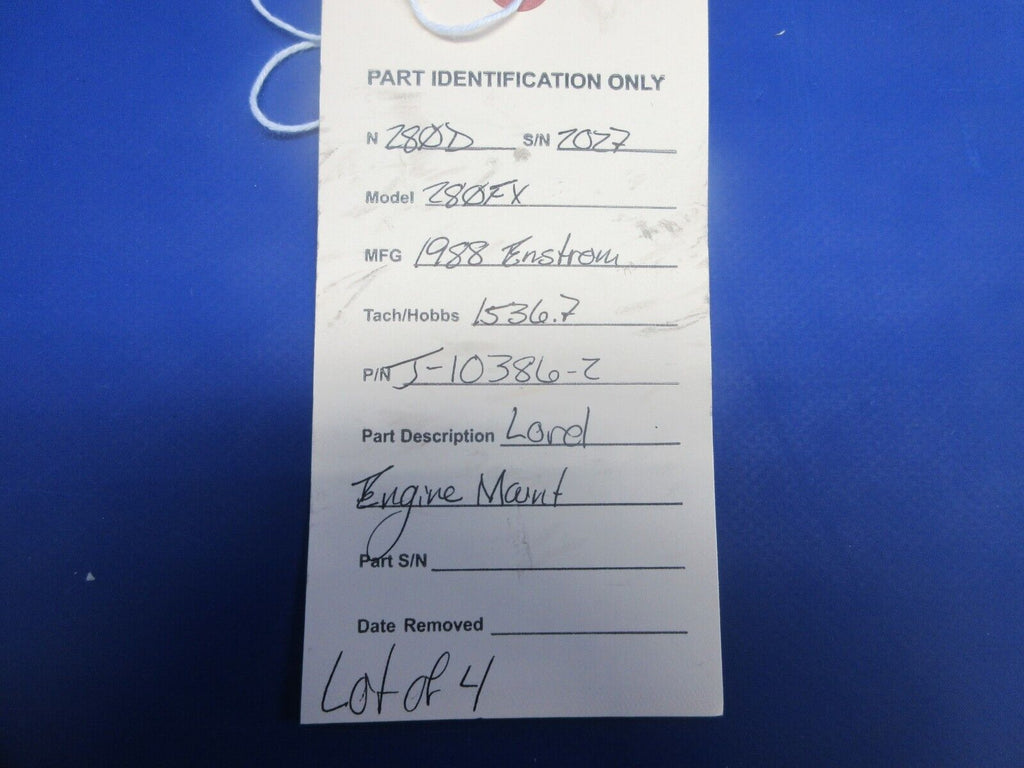 PART IDENTIFICATION ONLY
N 280D S/N 2027
Model 280FX
MFG 1988 Enstrom
Tach/Hobbs 1536.7
P/N J-10386-2
Part Description Lord
Engine Mount
Part S/N
Date Removed
Lot of 4